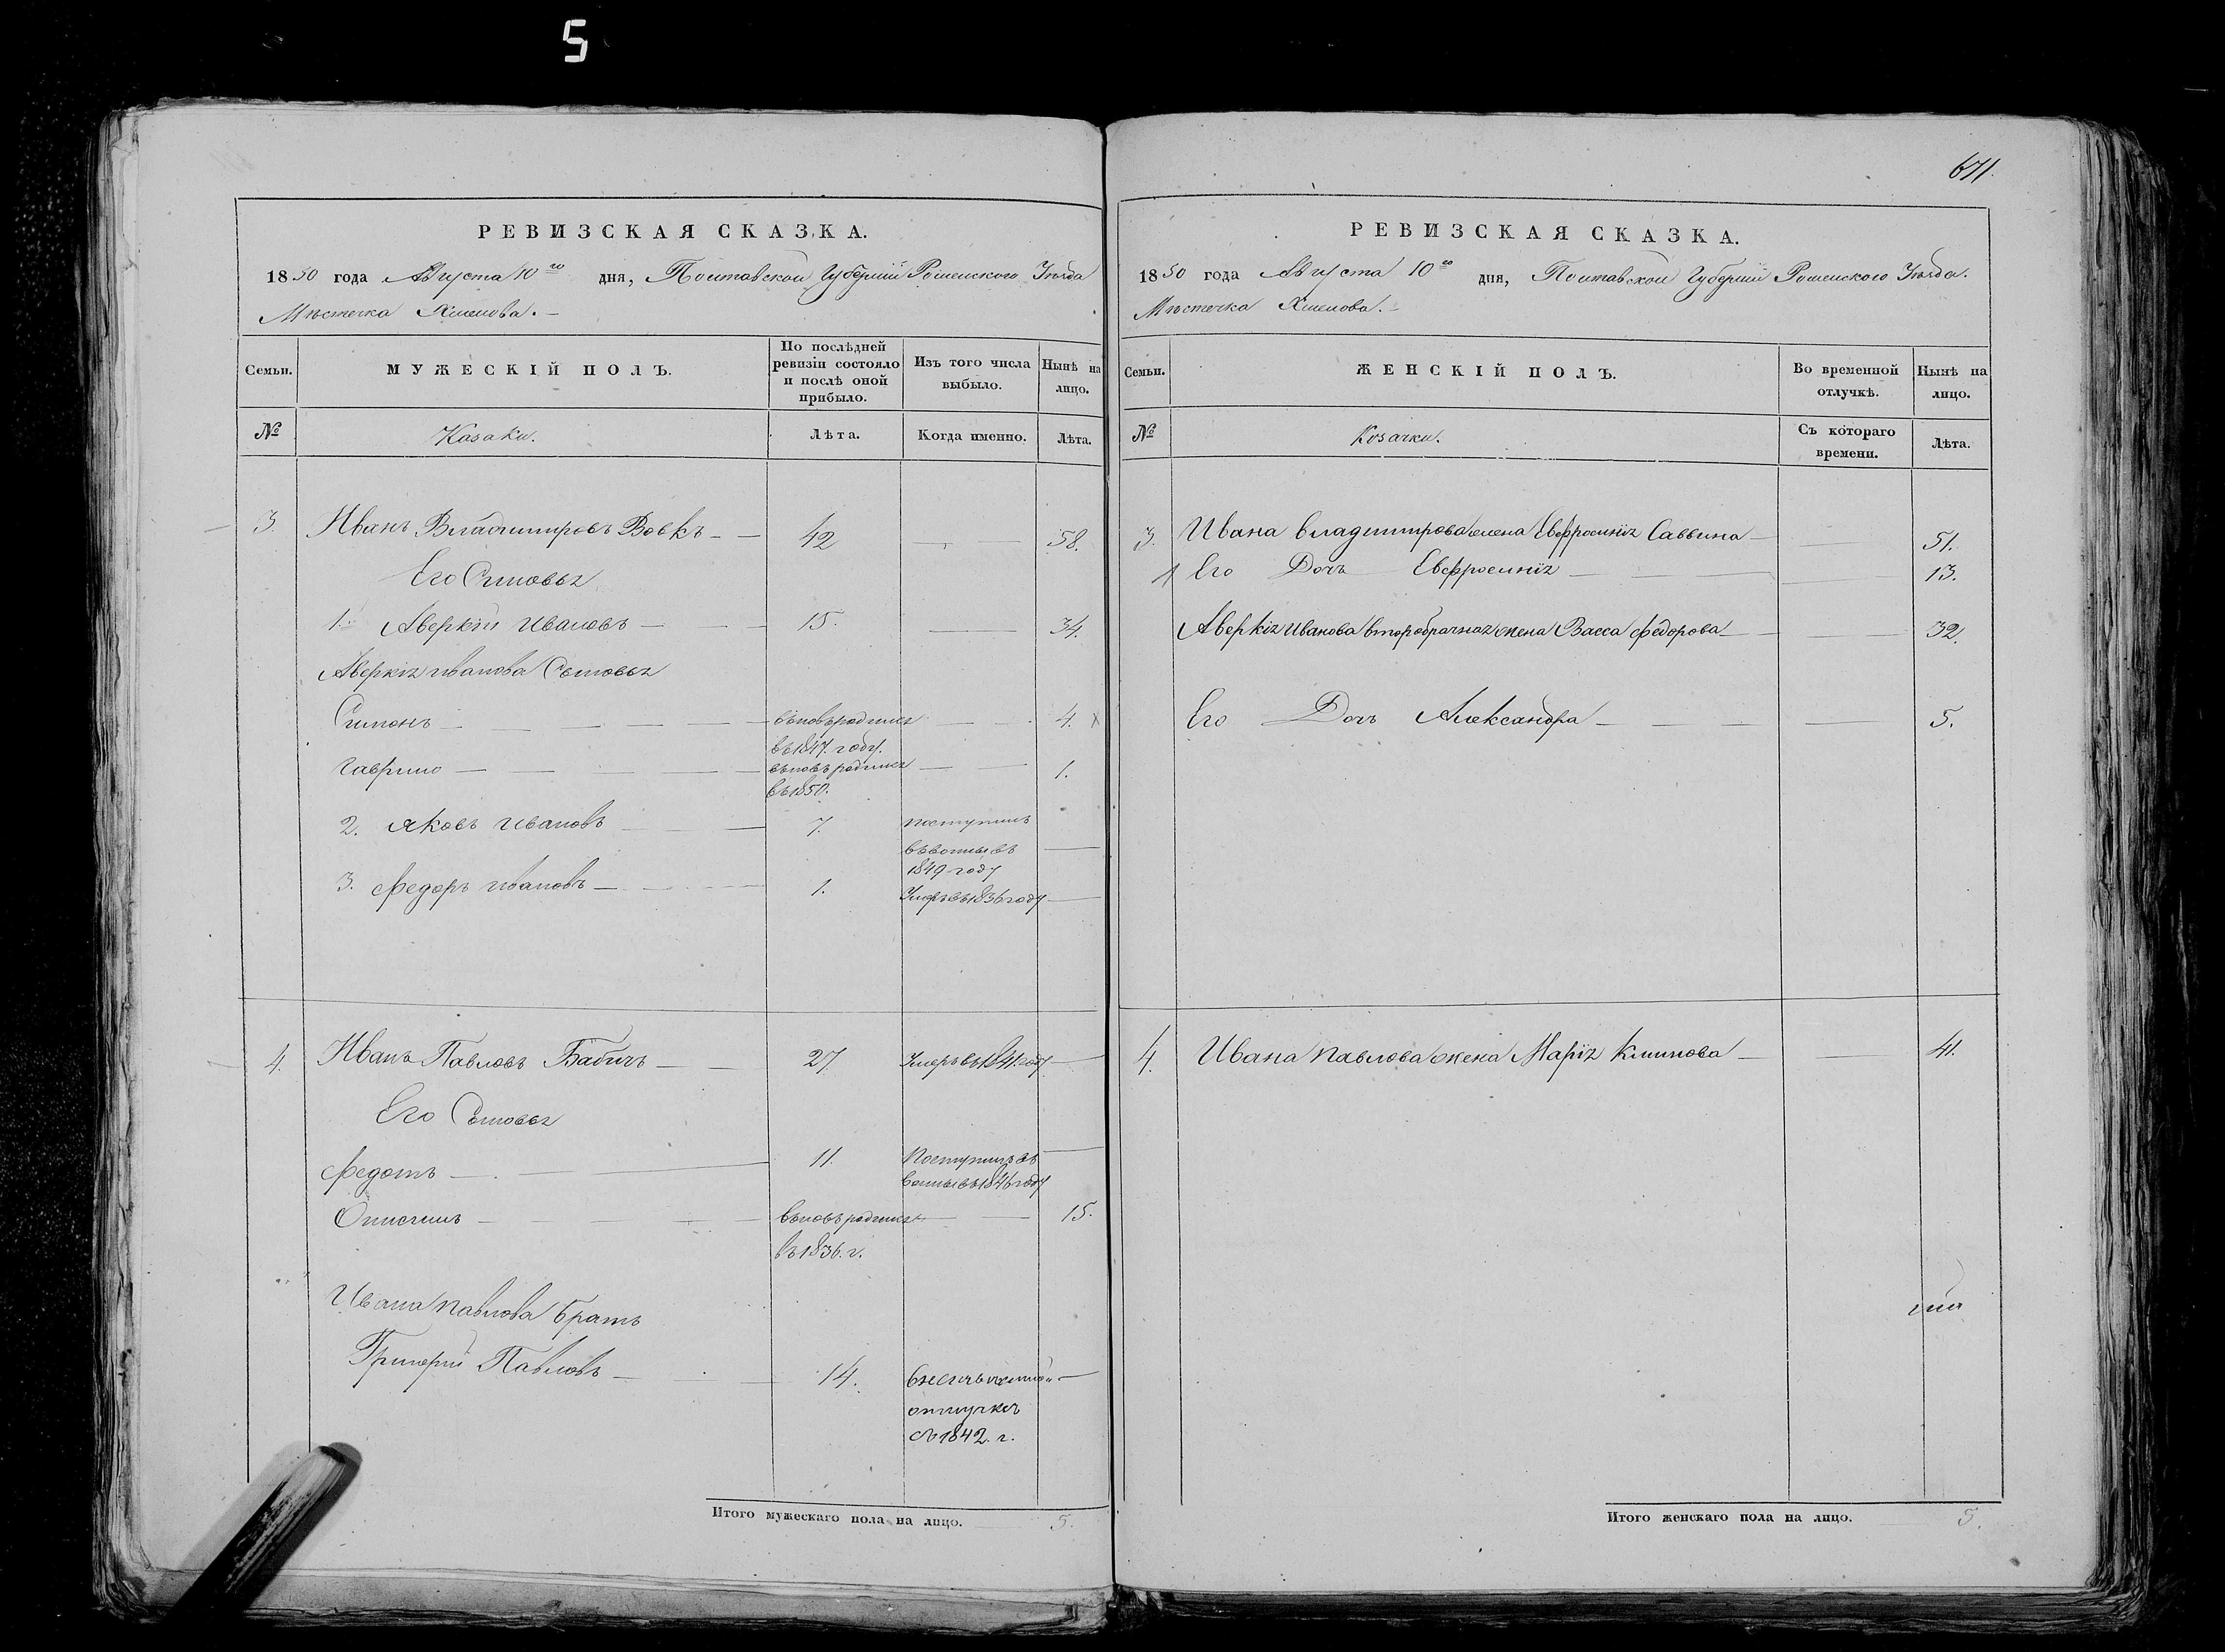 5
671.
РЕВИЗСКАЯ СКАЗКА.
1850 года Августа 10го дня, Полтавской Губерніи Роменского Уѣзда
Мѣстечка Хмелова.
Семьи.
МУЖЕСКІЙ ПОЛЪ.
По послѣдней ревизіи состояло и послѣ оной прибыло.
Изъ того числа выбыло.
Нынѣ на лицо.
№
Козаки.
Лѣта.
Когда именно.
Лѣта.
3. Иванъ Владимировъ Вовкъ 42 58.
Его Сыновья
1. Аверкій Ивановъ 15. 34.
Аверкія Иванова Сыновья
Симонъ вновь родился 4.
въ 1847. году.
Гаврило вновь родился 1.
въ 1850.
2. Яковъ Ивановъ 7. поступилъ
въ
1849 году
3. Федоръ Ивановъ 1. Умеръ въ 1836 году
4. Иванъ Павловъ Бабичъ 27 Умеръ въ 1841. году
Его Сыновья
Федотъ 11. Поступилъ въ
въ 1846 году
вновь родился 15.
въ 1836. г.
Ивана Павлова братъ
Григорій Павловъ 14.
отлучке
съ 1842. г.
Итого мужескаго пола на лицо. 5.
РЕВИЗСКАЯ СКАЗКА.
1850 года Августа 10го дня, Полтавской Губерніи Роменского Уѣзда.
Мѣстечка Хмелова.
Семьи.
ЖЕНСКІЙ ПОЛЪ.
Во временной отлучкѣ.
Нынѣ на лицо.
№
Козачки.
Съ котораго времени.
Лѣта.
3. Ивана Владимирова жена Евфросинія Саввина 51.
1 Его Дочь Евфросинія 13.
Аверкія Иванова второбрачная жена Васса Федорова 32.
Его Дочь Александра 5.
4. Ивана Павлова жена Марія Климова 41.
Итого женскаго пола на лицо. 5.